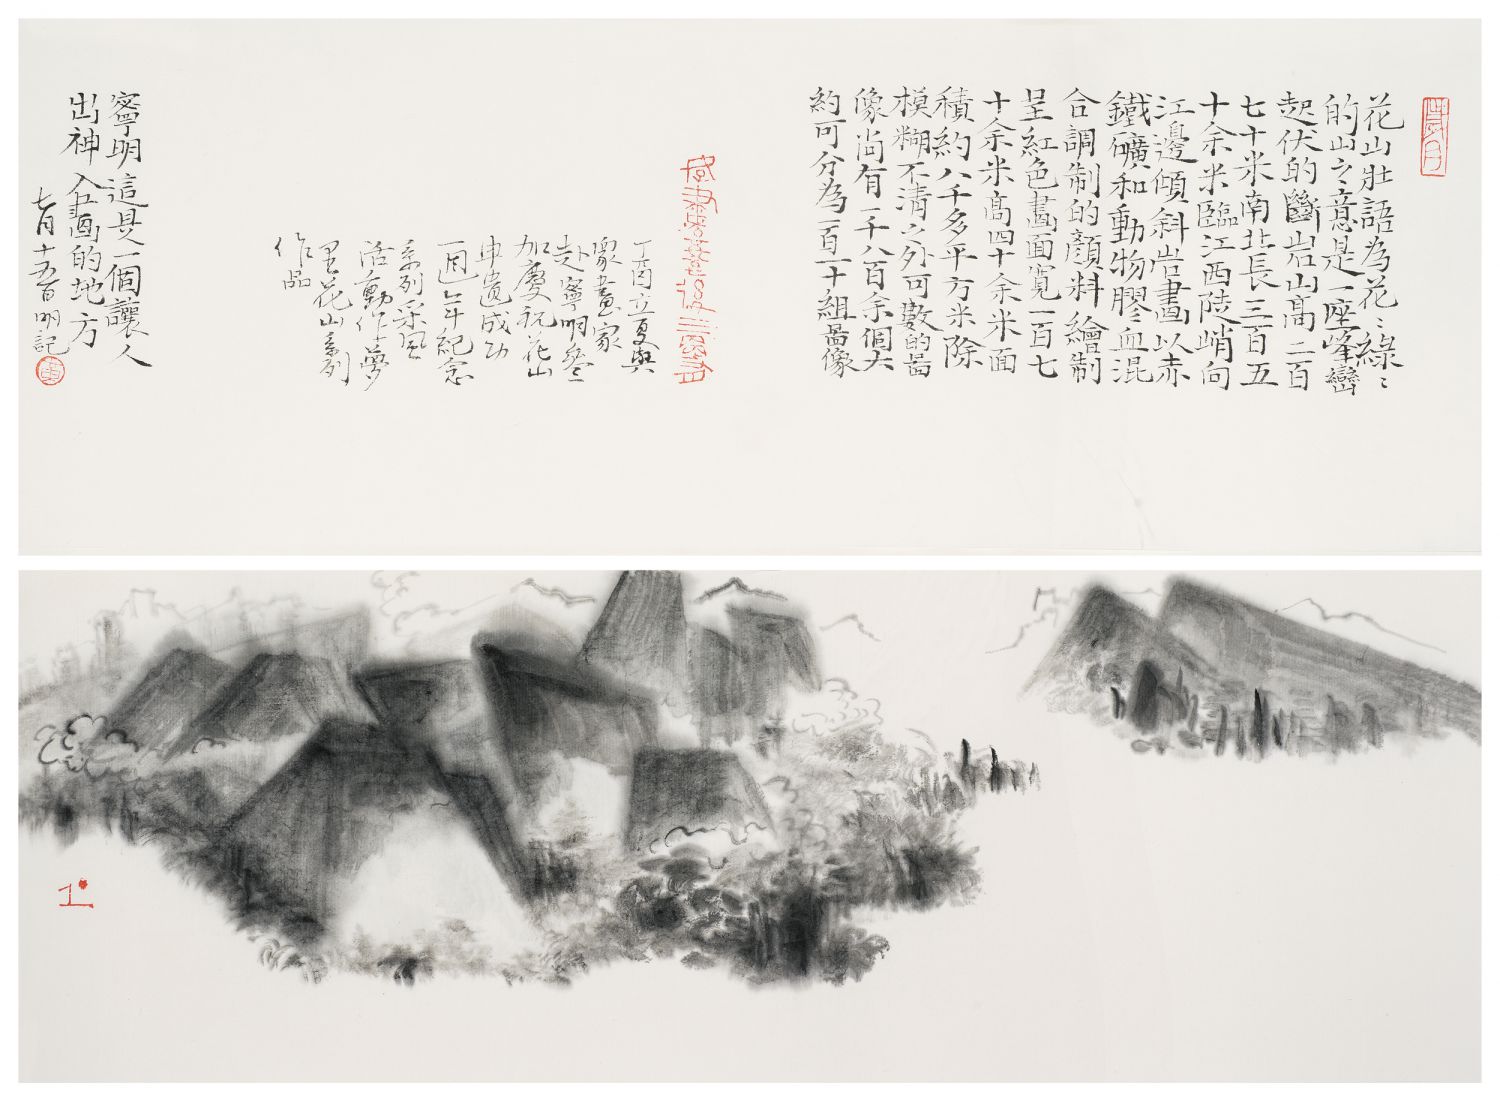 花山壯語為花〻綠〻
的山之意是一座峰巒
起伏的斷岩山高二百
七十米南北長三百五
十余米臨江西陡峭向
江邊傾斜岩畫以赤
鐵礦和動物膠血混
合調制的顏料繪制
呈紅色畫面寬一百七
十余米高四十余米面
積約八千多平方米除
模糊不清之外可數的啚
像尚有一千八百余個大
約可分為一百一十組啚像
丁酉立夏與
眾畫家
赴寧明參
加慶祝花山
申遺成功
一週年紀念
系列采風
活動作夢
里花山系列
作品
寧明這是一個讓人
出神入畫的地方
七月十五日明記